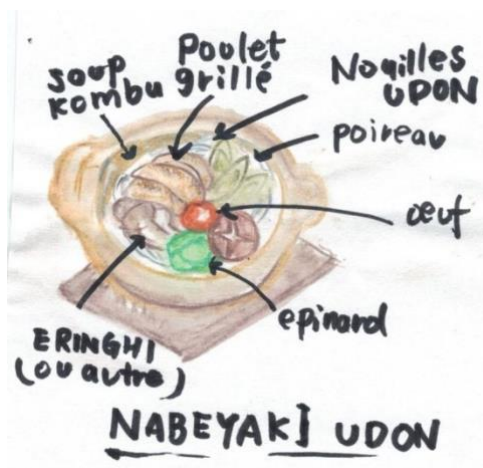 soup
kombu
Poulet
grillé
Nouilles
UDON
poireau
œuf
epinard
ERINGHI
(ou autre)
NABEYAKI UDON